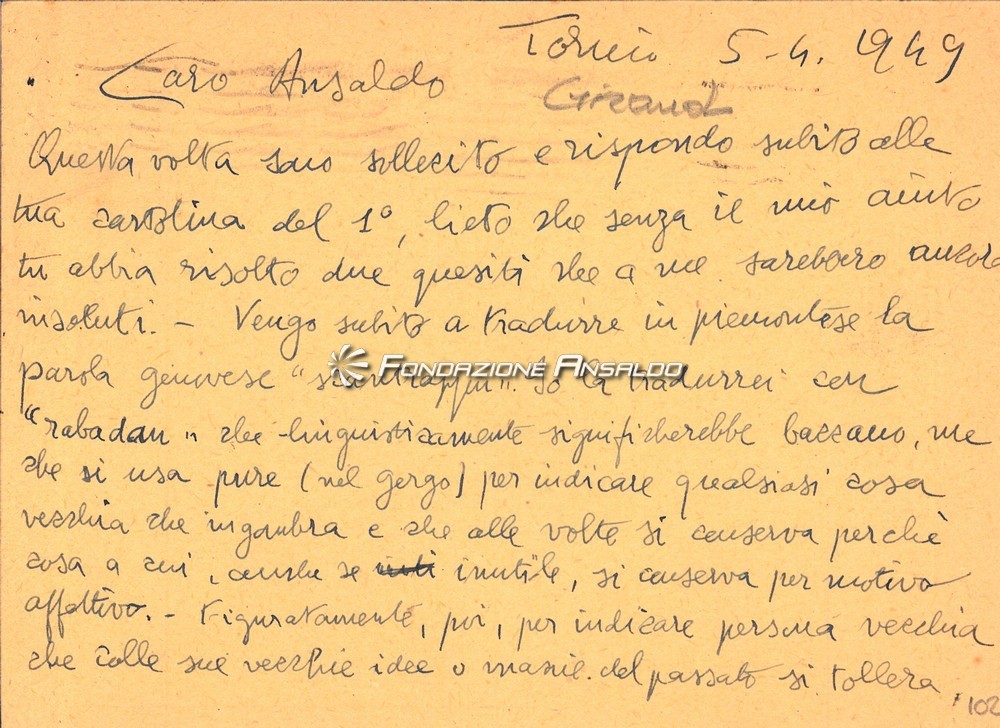 Torino 5-4. 1949
Caro Ansaldo
Giraud
Questa volta sono sollecito e rispondo subito alla
tua cartolina del 1°, lieto che senza il mio aiuto
tu abbia risolto due quesiti che a me sarebbero ancora
insoluti. - Vengo subito a tradurre in piemontese la
FONDAZIONE ANSALDO
parola genovese Io la tradurrei con
"rabadan" che linguisticamente significherebbe baccano, ma
che si usa pure (nel gergo) per indicare qualsiasi cosa
vecchia che ingombra e che alle volte si conserva perchè
cosa a cui, anche se inutile, si conserva per motivo
affettivo. - Figuratamente, poi, per indicare persona vecchia
che colle sue vecchie idee o manie del passato si tollera.
102